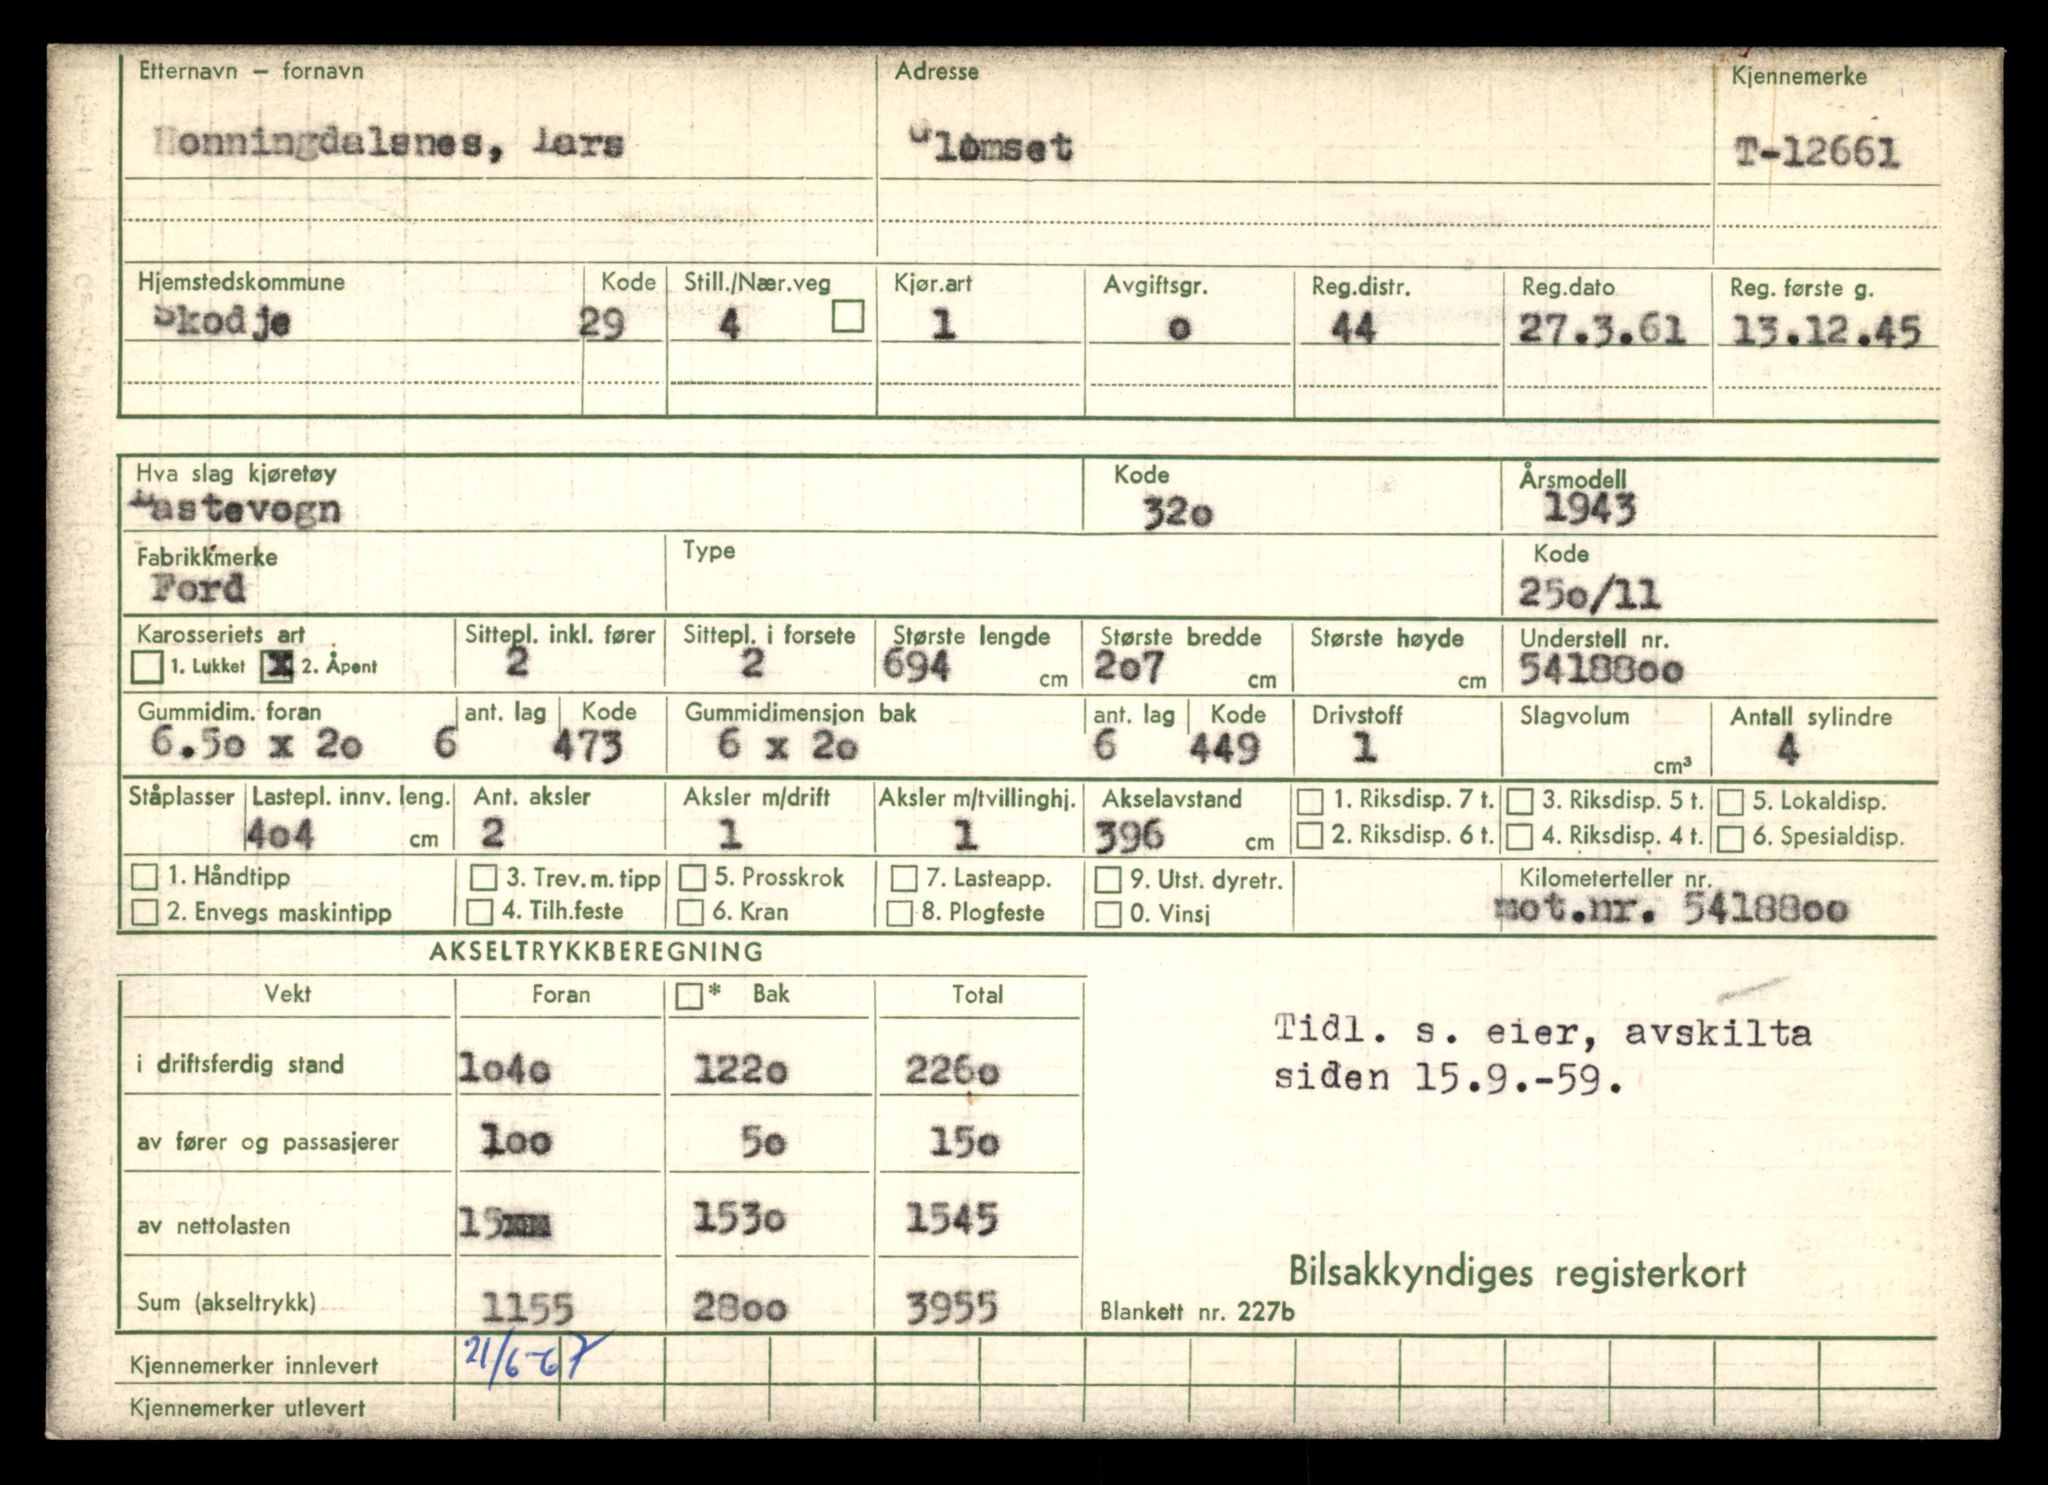 Etternavn – fornavn Adresse Kjennemerke
Honningdalsnes, Lars Glomset T-12661
Hjemstedskommune Kode Still./Nær.veg Kjør.art Avgiftsgr. Reg.distr. Reg.dato Reg. første g.
Skodje 29 4 1 o 44 27.3.61 13.12.45
Hva slag kjøretøy Kode Årsmodell
Lastevogn 32o 1943
Fabrikkmerke Type Kode
Ford 25o/11
Karosseriets art Sittepl. inkl. fører Sittepl. i forsete Største lengde Største bredde Største høyde Understell nr.
1. Lukket x 2. Åpent 2 2 694 cm 2o7 cm cm 54188oo
Gummidim. foran ant. lag Kode Gummidimensjon bak ant. lag Kode Drivstoff Slagvolum Antall sylindre
6.5o x 2o 6 473 6 x 2o 6 449 1 cm³ 4
Ståplasser Lastepl. innv. leng. Ant. aksler Aksler m/drift Aksler m/tvillinghj. Akselavstand 1. Riksdisp. 7 t. 3. Riksdisp. 5 t. 5. Lokaldisp.
4o4 cm 2 1 1 396 cm 2. Riksdisp. 6 t. 4. Riksdisp. 4 t. 6. Spesialdisp.
1. Håndtipp 3. Trev. m. tipp 5. Prosskrok 7. Lasteapp. 9. Utst. dyretr. Kilometerteller nr.
2. Envegs maskintipp 4. Tilh.feste 6. Kran 8. Plogfeste 0. Vinsj mot.nr. 54188oo
AKSELTRYKKBEREGNING
Vekt Foran * Bak Total
i driftsferdig stand 1o4o 122o 226o
av fører og passasjerer 1oo 5o 15o
av nettolasten 15 153o 1545
Sum (akseltrykk) 1155 28oo 3955
Tidl. s. eier, avskilta
siden 15.9.-59.
Bilsakkyndiges registerkort
Blankett nr. 227b
Kjennemerker innlevert 21/6-67
Kjennemerker utlevert